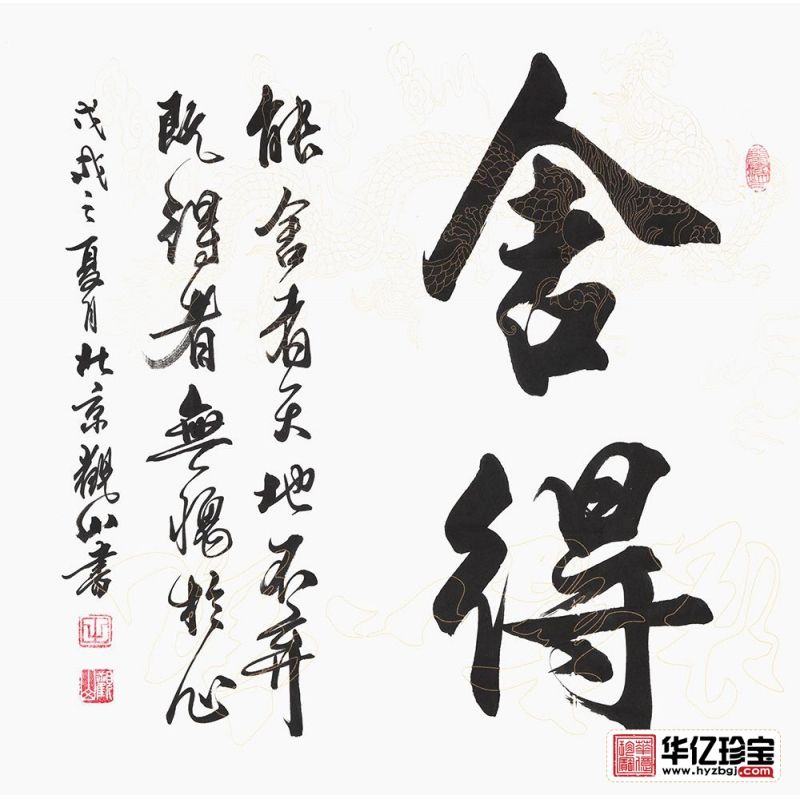 舍得
能舍者天地不弃
既得者無愧於心
戊戌之夏月北京觀山書
华亿珍宝
www.hyzbgj.com